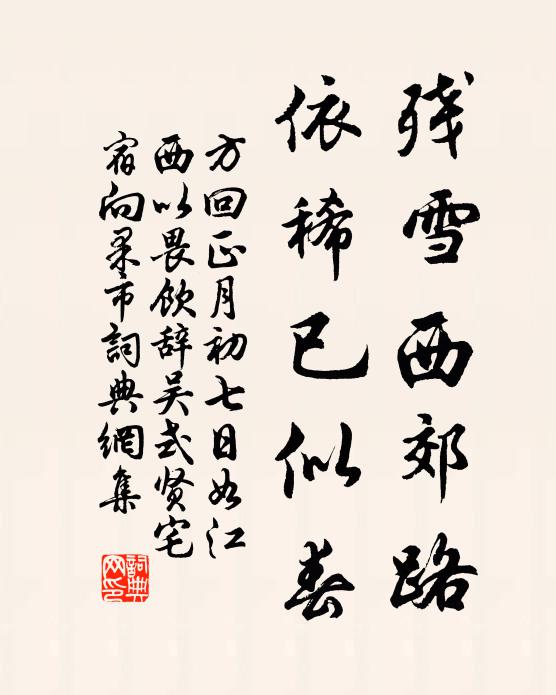 残雪西郊路
依稀已似春
方回正月初七日如江
西以畏飲辞吴式贤宅
宿向杲市詞典網集
詞典
网印